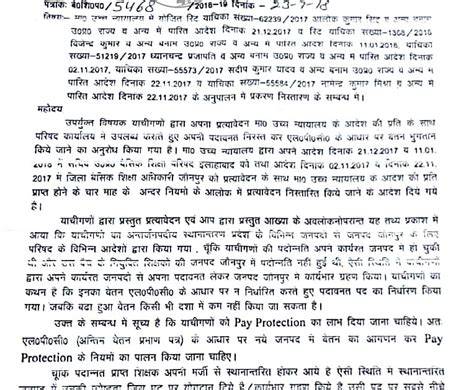 पत्रांकः बे0शि0प0/5468 /2018-19 दिनांक- 23-7-18
विषयः- मा0 उच्च न्यायालय में योजित रिट याचिका संख्या-62239/2017 आलोक कुमार सिंह व अन्य बनाम
उ0प्र0 राज्य व अन्य में पारित आदेश दिनांक 21.12.2017 व रिट याचिका संख्या-1368/2018
विजेन्द्र कुमार व अन्य बनाम उ0प्र0 राज्य व अन्य में पारित आदेश दिनांक 11.01.2018, याचिका
संख्या-51219/2017 ध्यानचन्द प्रजापति व अन्य बनाम उ0प्र0 राज्य व अन्य में पारित आदेश दिनांक
02.11.2017, याचिका संख्या-55573/2017 संदीप कुमार यादव व अन्य बनाम उ0प्र0 राज्य व अन्य में
पारित आदेश दिनांक 22.11.2017 व याचिका संख्या-55584/2017 नामेन्द्र कुमार मिश्रा व अन्य में
पारित आदेश दिनांक 22.11.2017 के अनुपालन में प्रकरण निस्तारण के सम्बन्ध में।
महोदय
उपर्युक्त विषयक याचीगणों द्वारा अपना प्रत्यावेदन मा0 उच्च न्यायालय के आदेश की प्रति के साथ
परिषद कार्यालय में उपलब्ध कराते हुए अपनी पदावनत निरस्त कर एल0पी0सी0 के आधार पर वेतन भुगतान
किये जाने का अनुरोध किया गया है। मा0 उच्च न्यायालय द्वारा अपने आदेश दिनांक 21.12.2017 व 11.01.
2018 में सचिव उ0प्र0 बेसिक शिक्षा परिषद इलाहाबाद को तथा आदेश दिनांक 02.11.2017 व दिनांक 22.
11.2017 में जिला बेसिक शिक्षा अधिकारी जौनपुर को प्रत्यावेदन के साथ मा0 उच्च न्यायालय के आदेश की प्रति
प्राप्त होने के चार माह के अन्दर नियमो के आलोक में प्रत्यावेदन निस्तारित किये जाने के आदेश दिये गये
है।
याचीगणों द्वारा प्रस्तुत प्रत्यावेदन एवं आप द्वारा प्रस्तुत आख्या के अवलोकनोपरान्त यह तथ्य प्रकाश में
आया कि याचीगणों का अन्तर्जनपदीय स्थानान्तरण प्रदेश के विभिन्न जनपदों से जनपद जौनपुर के लिए
परिषद के विभिन्न आदेशों द्वारा किया गया , चूँकि याचीगणों की पदोन्नति अपने कार्यरत जनपद में हो चुकी
थी और उस बैच के नियुक्ति शिक्षकों की जनपद जौनपुर में पदोन्नति नहीं हुई थी, ऐसी स्थिति में याचीगणों
द्वारा अपने कार्यरत जनपदों से अपना पदावनत लेकर जनपद जौनपुर में कार्यभार ग्रहण किया। याचीगणों का
कथन है कि इनका वेतन एल0पी0सी0 के आधार पर न निर्धारित करते हुए पदावनत पद का निर्धारण किया
गया। जबकि बढा हुआ वेतन किसी भी दशा में कम नहीं किया जा सकता है।
उक्त के सम्बन्ध में सूच्य है कि याचीगणों को Pay Protection का लाभ दिया जाना चाहिये। अतः
एल0पी0सी0 (अन्तिम वेतन प्रमाण पत्र) के आधार पर नये जनपद में वेतन का आगणन कर Pay
Protection के नियमों का पालन किया जाना चाहिए।
चूकि पदान्नत प्राप्त शिक्षक अपनी मर्जी से स्थानान्तरित होकर आये है ऐसी स्थिति में स्थानान्तरित